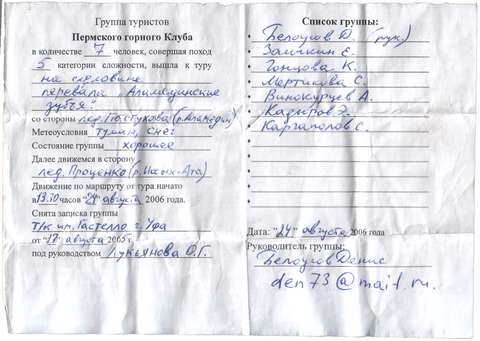 Группа туристов
Пермского горного Клуба
в количестве 7 человек, совершая поход
5 категории сложности, вышла к туру
на седловине
перевала "Аламединские
зубья"
со стороны лед. Топстухова (р. Аламедин)
Метеоусловия туман, снег
Состояние группы хорошее
Далее движемся в сторону
лед. Проценко (р. Иссык-Ата)
Движение по маршруту от тура начато
в часов "24" августа 2006 года.
Снята записка группы
Т/к им. Гастелло г. Уфа
от "17" августа 2005 г.
под руководством Лукьянова О.Г.
Список группы:
• Белоусов Д. (рук.)
• Заичкин Е.
• Гонцова К.
• Мартикова С.
• Винокурцев А.
• Кадиров Э.
• Каргаполов С.
•
•
•
•
•
Дата: "24" августа 2006 года
Руководитель группы:
Белоусов Денис
den73@mail.ru.